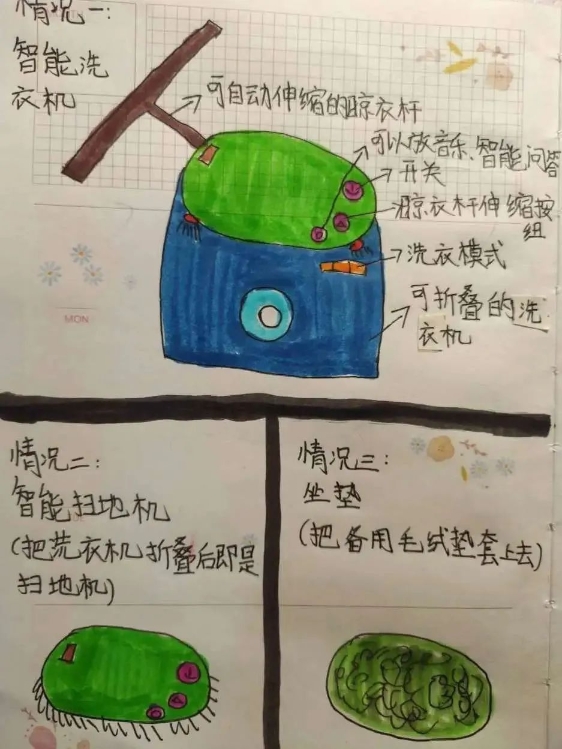 情况一:
智能洗
衣机
可自动伸缩的晾衣杆
可以放音乐、智能问答
开关
晾衣杆伸缩按
组
洗衣模式
可折叠的洗
衣机
MON
情况二:
智能扫地机
(把洗衣机折叠后即是
扫地机)
情况三:
坐垫
(把备用毛绒垫套上去)